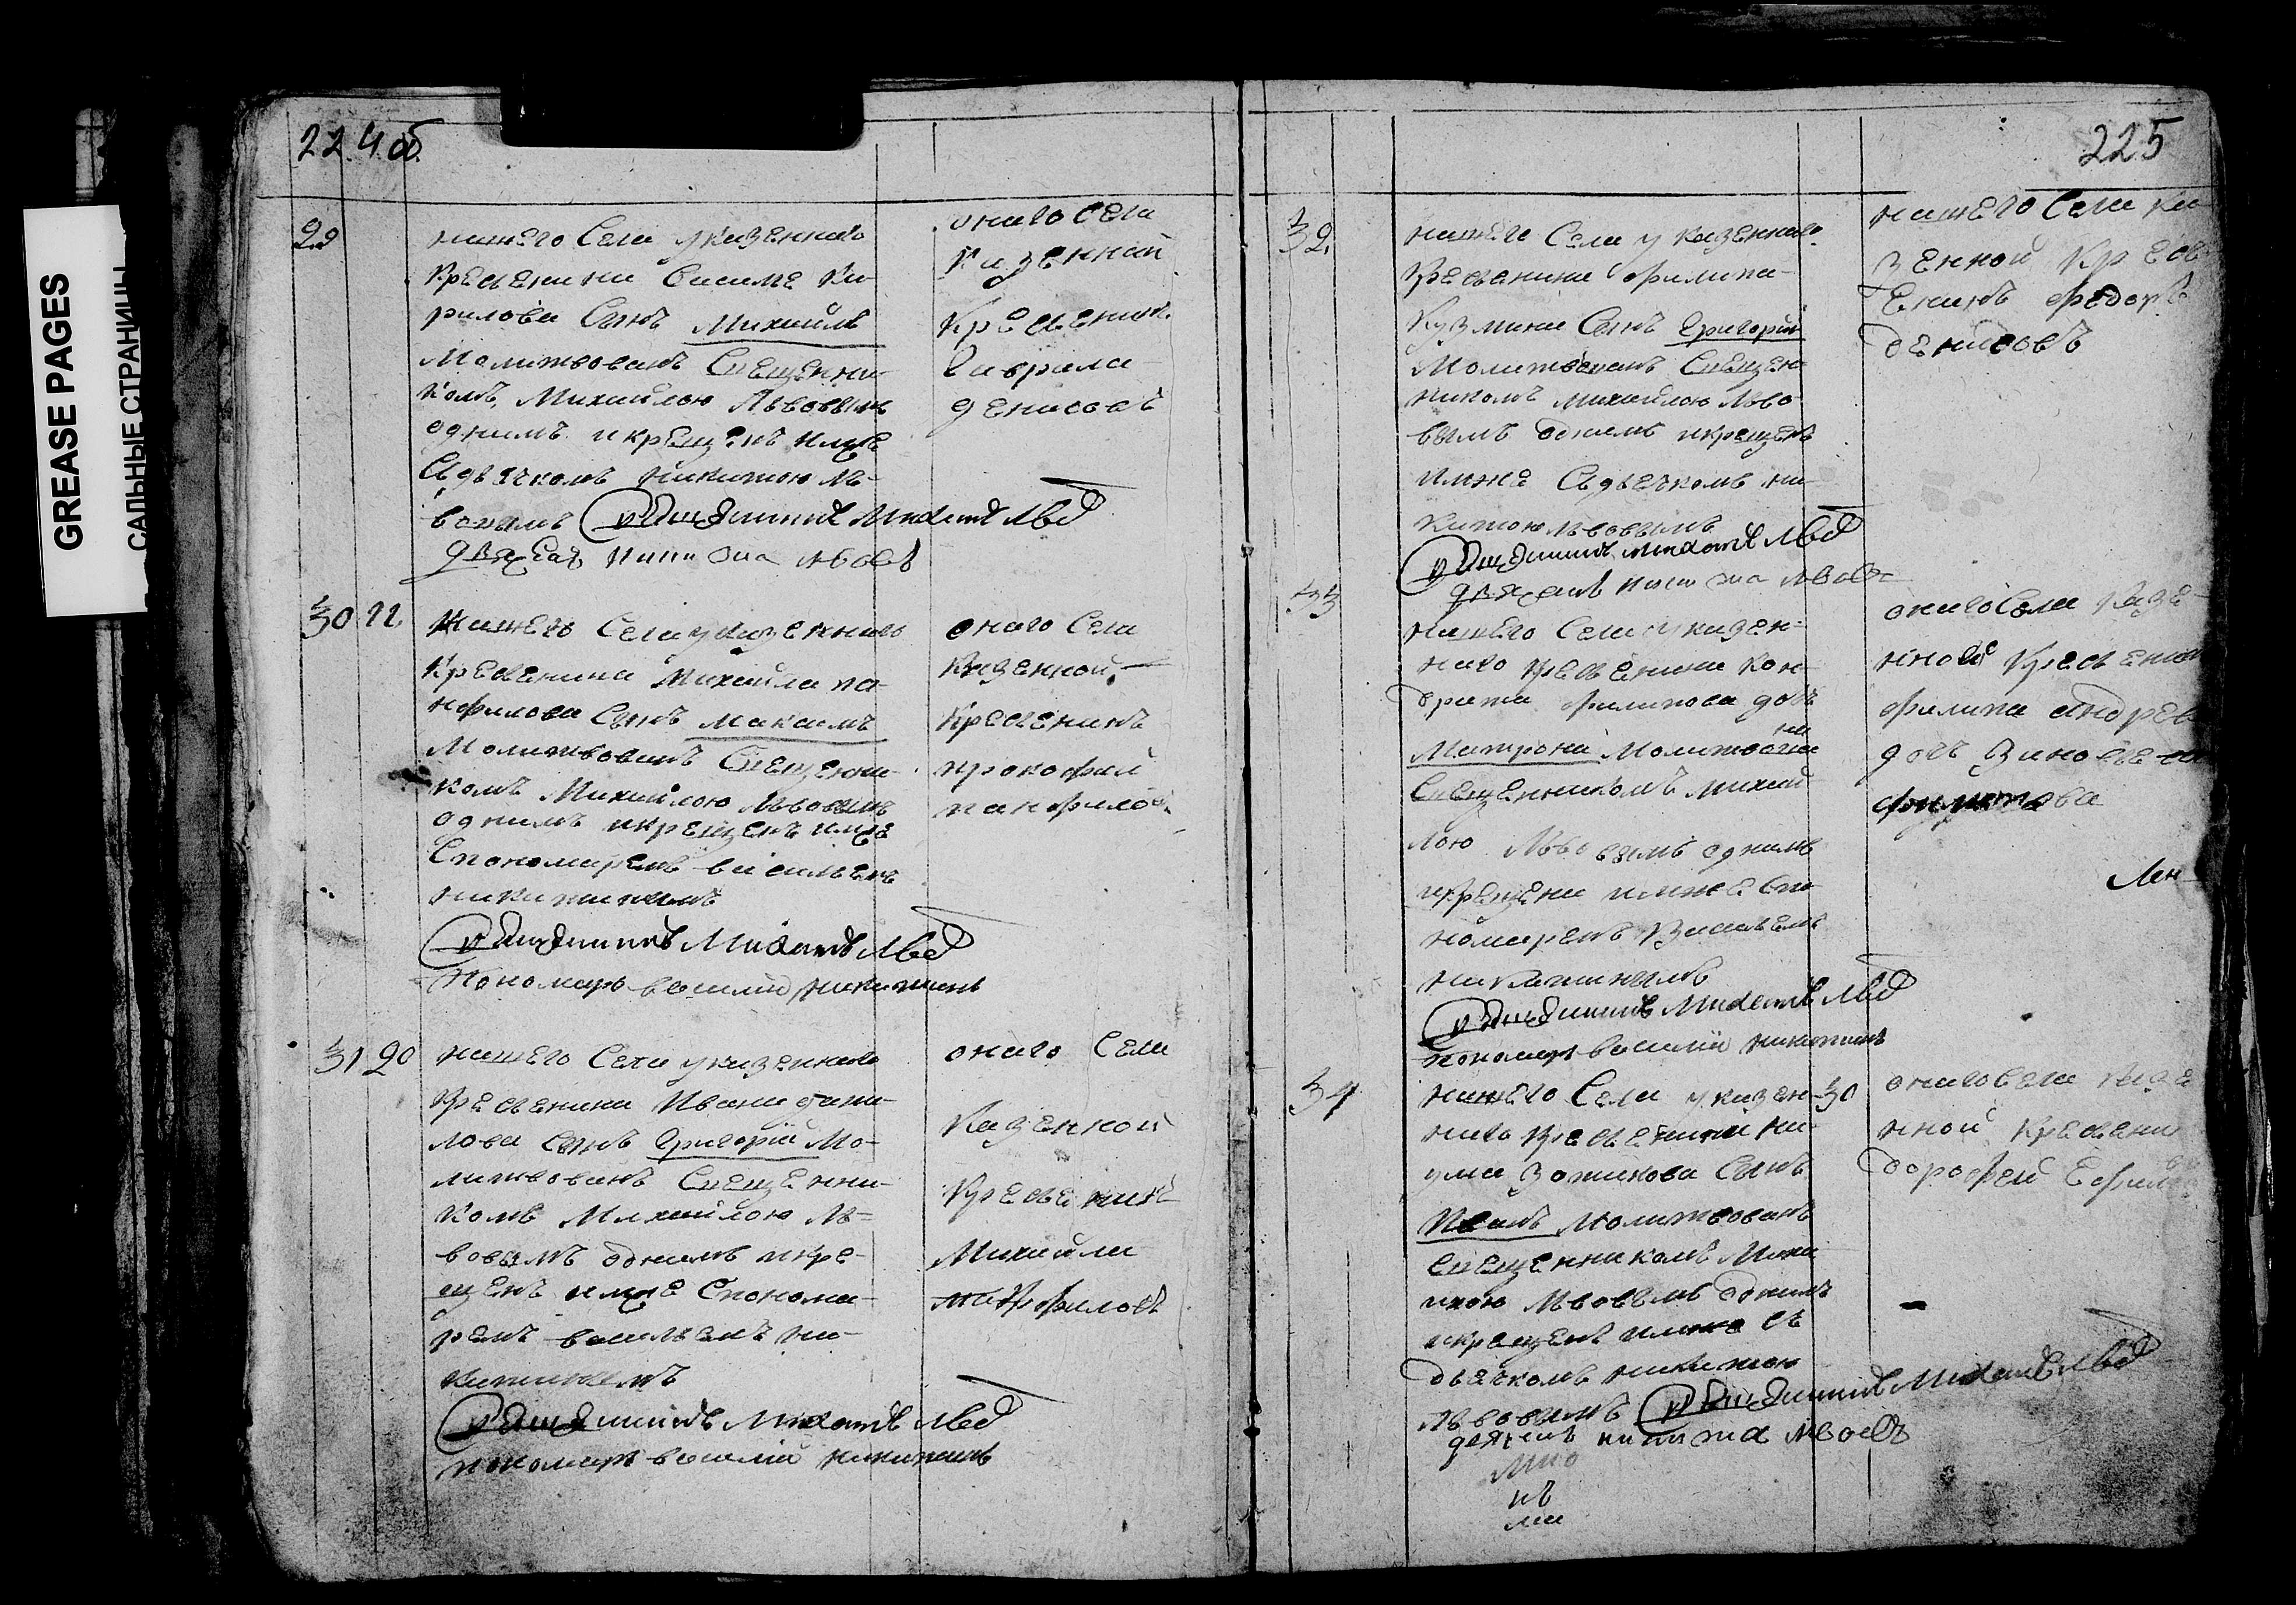 GREASE PAGES
САЛЬНЫЕ СТРАНИЦЫ
224 об.
29
нашего Села у казеннаго
Кресьенина Сисиме Ки-
рилова Сынъ Михайлъ
Молитвованъ Сщенни-
комъ Михайлою Львовымъ
однимъ и крещенъ имже
Сдьячкомъ Никитою Ль-
вовымъ Священникъ Михаилъ Львовъ
дьячекъ Никита Львовъ
онаго Села
Казенный
Кресьенинъ
Гаврила
денисовъ
30 11
Нашего Села у казеннаго
Кресьенина Михайла па-
нфилова Сынъ Максимъ
Молитвованъ Сщенни-
комъ Михайлою Львовымъ
однимъ и крещенъ имже
Спономаремъ васильемъ
никитинымъ
Священникъ Михаилъ Львовъ
Пономарь василий никитинъ
онаго Села
Казенной
Кресьенинъ
прокофей
панфиловъ
31 20
нашего Села у казеннаго
Кресьенина Ивана дани-
лова Сынъ Григорiй Мо-
литвованъ Сщенни-
комъ Михайлою Ль-
вовымъ однимъ и кре-
щенъ имже Спонома-
ремъ васильемъ ни-
китинымъ
Священникъ Михаилъ Львовъ
пономарь василий никитинъ
онаго Села
Казенной
Кресьенинъ
Михайла
панфиловъ
225
32
нашего Села у казеннаго
Кресьенина филипа
Кузмина Сынъ Григорiй
Молитвованъ Сщен-
никомъ михайлою Льво-
вымъ однимъ и крещенъ
имже Сдьячкомъ ни-
китою львовымъ
Священникъ Михаилъ Львовъ
дьячекъ Никита Львовъ
нашего Села ка-
зенной Кресь-
енинъ федоръ
денисовъ
33
Нашего Села у казен-
наго кресьенина Кон-
драта филипова дочь
Матрона Молитвована
Сщенникомъ михай-
лою Львовымъ однимъ
и крещена имже Спо-
номаремъ Васильемъ
Никитинымъ
Священникъ Михаилъ Львовъ
пономарь василий никитинъ
онаго Села Казе-
нной Кресьенин
филипа андрев
дочь Зиновье
филипова
Лен
34
нашего Села у казен- 30
наго кресьенина на-
ума Зотикова Сынъ
Иванъ Молитвованъ
Сщенникомъ Миха-
илою Львовымъ однимъ
и крещенъ имже Съ
дьячкомъ никитою
львовымъ Священникъ Михаилъ Львовъ
дьячекъ никита Львовъ
онаго Села казе
нной Кресьени
дорофей Ефим